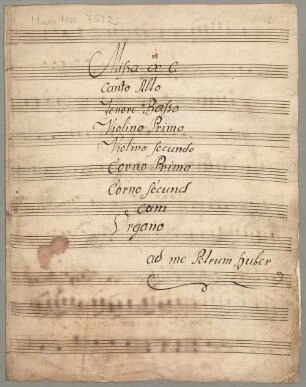 Mus. Ms. 7592
Missa ex C
Canto Alto
Tenore Basso
Violino Primo
Violino Secundo
Corno Primo
Corno Secund
com
Organo
ad me Petrum Huber